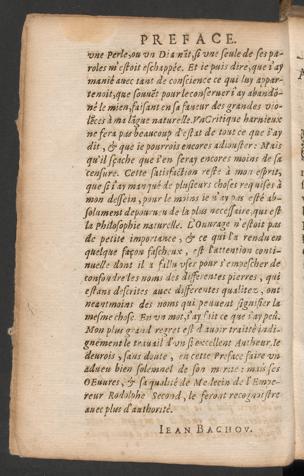 PREFACE.
vne Perle, ou vn Diamãt, si vne seule de ses pa-
roles m'estoit eschappée. Et ie puis dire, que i'ay
manié auec tant de conscience ce qui luy appar-
tenoit, que souuẽt pour le conseruer i'ay abandõ-
né le mien, faisant en sa faueur des grandes vio-
lẽces à ma lãgue naturelle. Vn Critique harnieux
ne fera pas beaucoup d'estat de tout ce que i'ay
dit, & que ie pourrois encores adiouster: Mais
qu'il sçache que i'en seray encores moins de sa
censure. Cette satisfaction reste à mon esprit,
que si i'ay manqué de plusieurs choses requises à
mon dessein, pour le moins ie n'ay pas esté ab-
solument depourueu de la plus necessaire, qui est
la Philosophie naturelle. L'Ouurage n'estoit pas
de petite importance, & ce qui l'a rendu en
quelque façon fascheux, est l'attention conti-
nuelle dont il a fallu vser pour s'empescher de
confondre les noms des differentes pierres, qui
estans descrites auec differentes qualitez, ont
neantmoins des noms qui peuuent signifier la
mesme chose. En vn mot, i'ay fait ce que i'ay peu.
Mon plus grand regret est d'auoir traitté indi-
gnement le trauail d'vn si excellent Autheur. Ie
deurois, sans doute, en cette Preface faire vn
adueu bien solemnel de son merite: mais ses
OEuures, & sa qualité de Medecin de l'Empe-
reur Rodolphe Second, le feront recognoistre
auec plus d'authorité.
IEAN BACHOV.